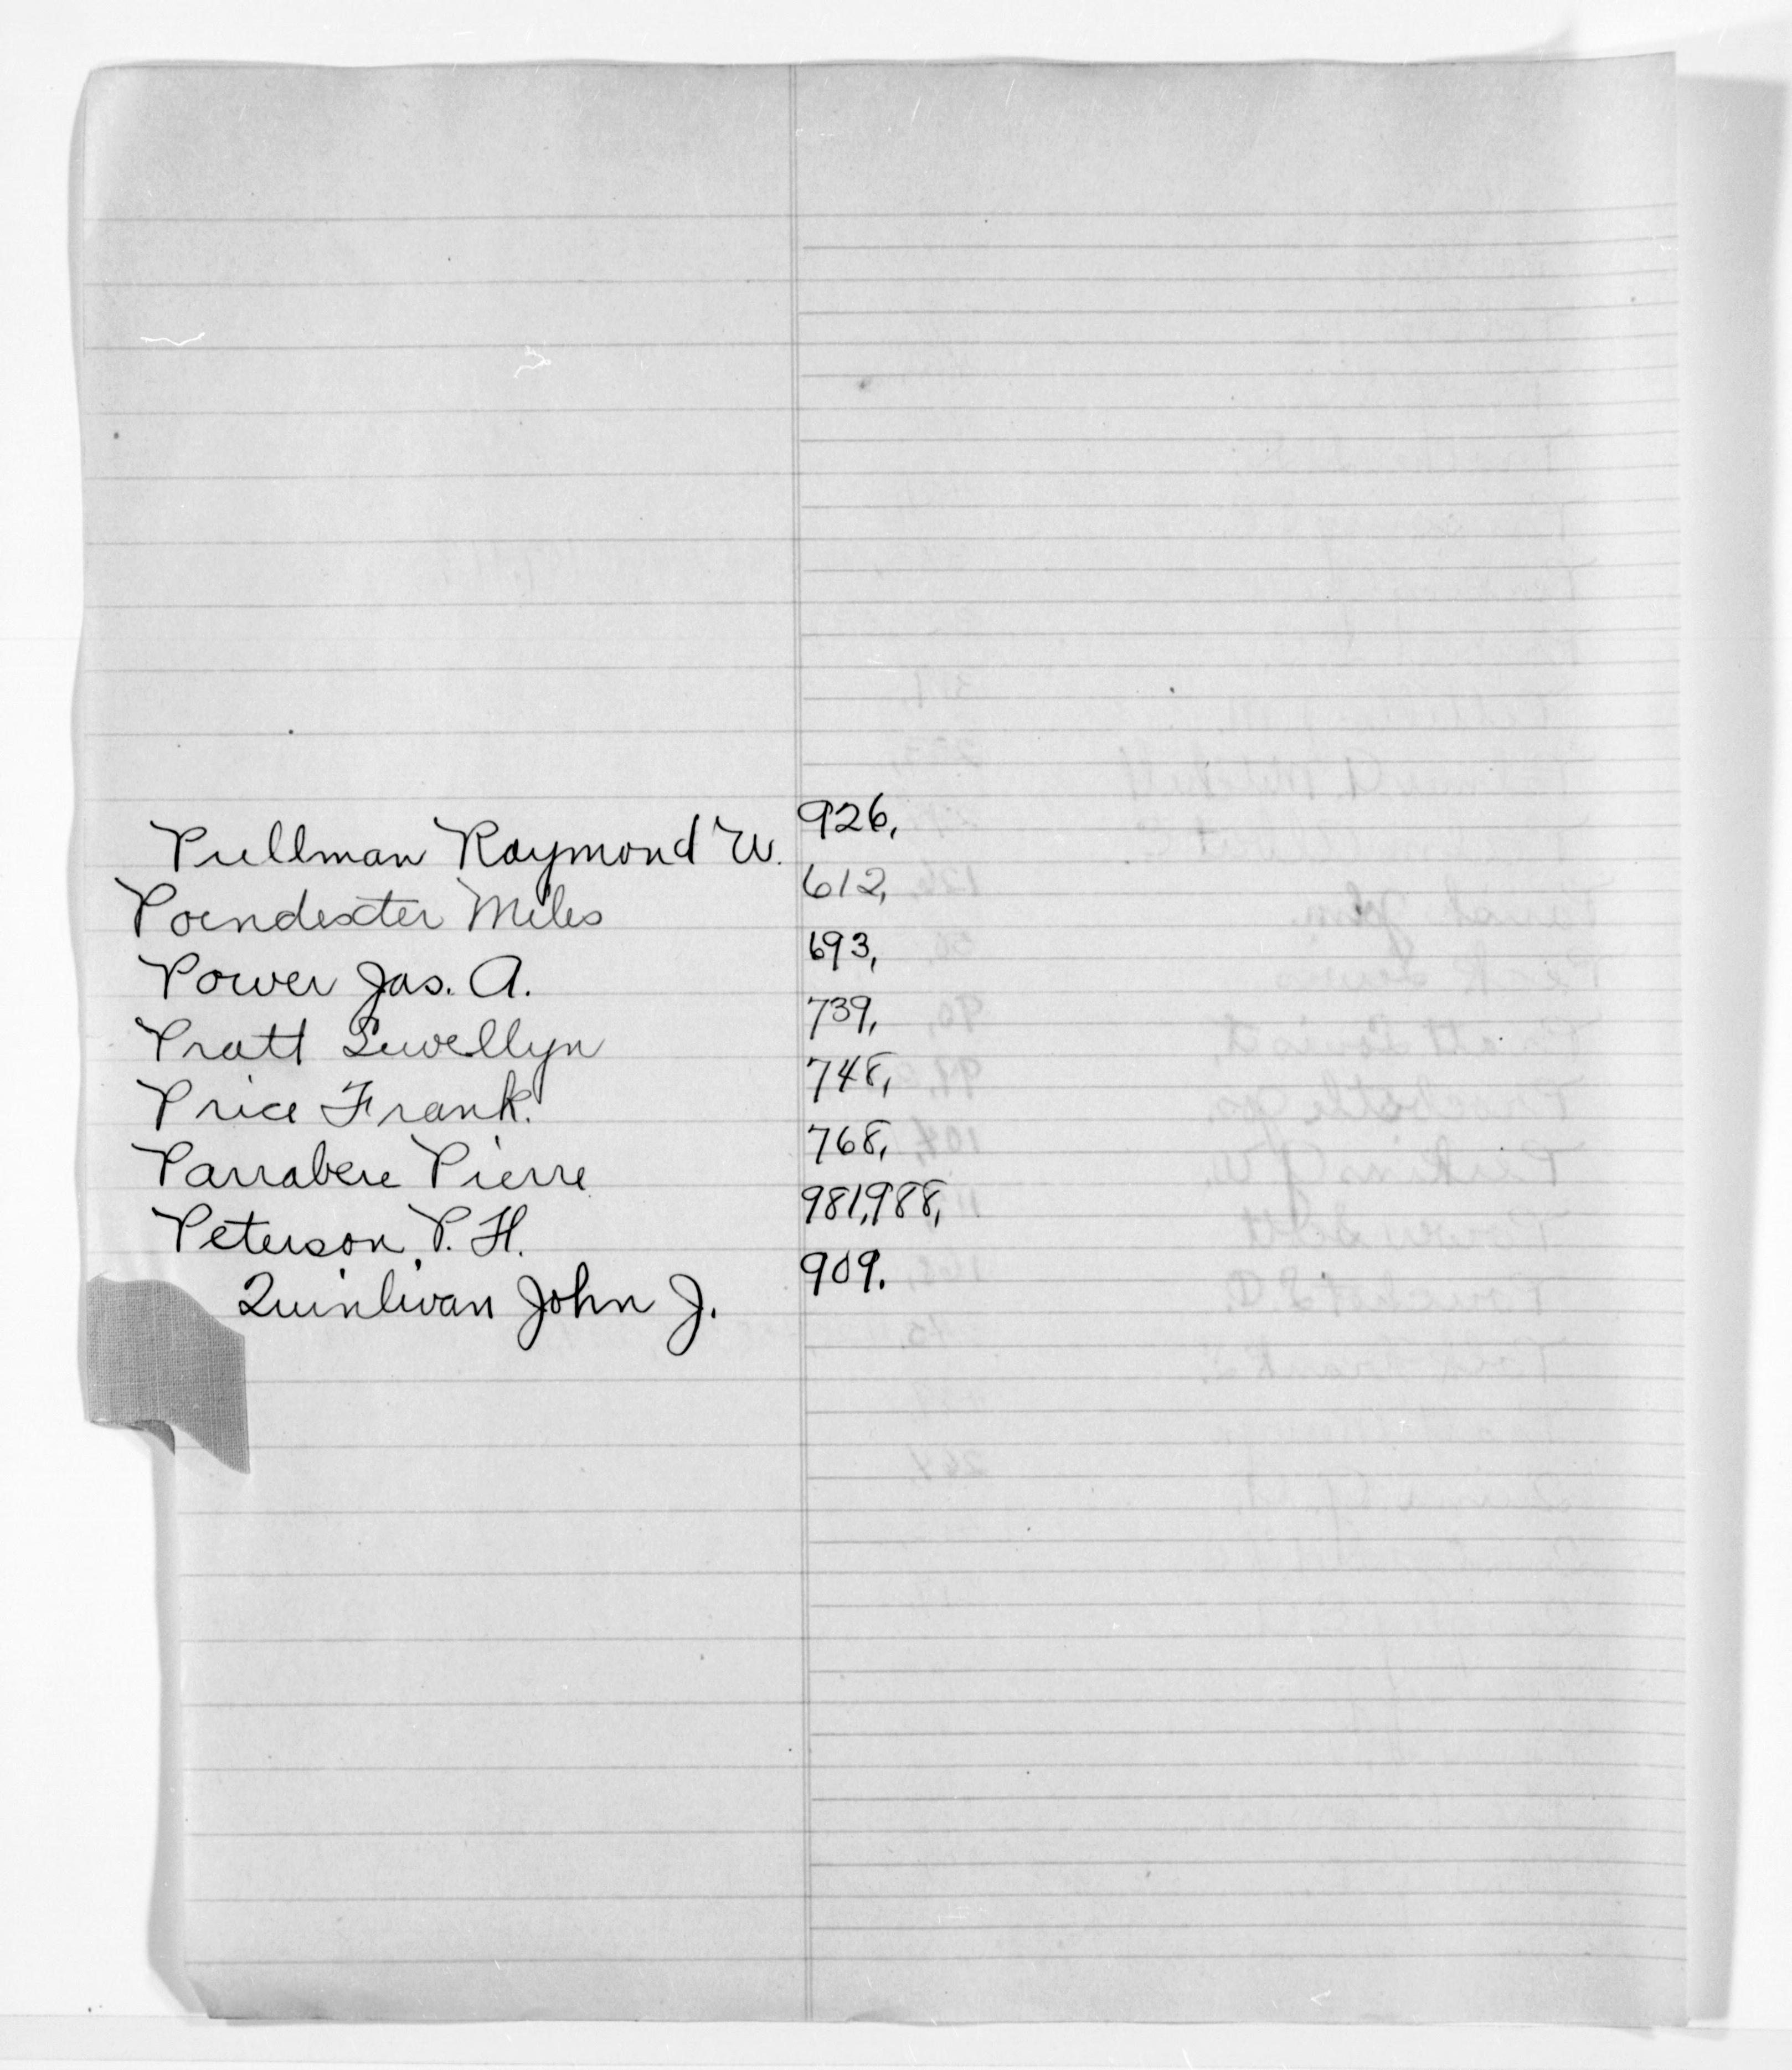 Pullman Raymond W. 926,
Poindexter Miles 612,
Power Jas. A. 693,
Pratt Lewellyn 739,
Price Frank. 748,
Parrabere Pierre 768,
Peterson, P. H. 981,988,
Quinlivan John J. 909.